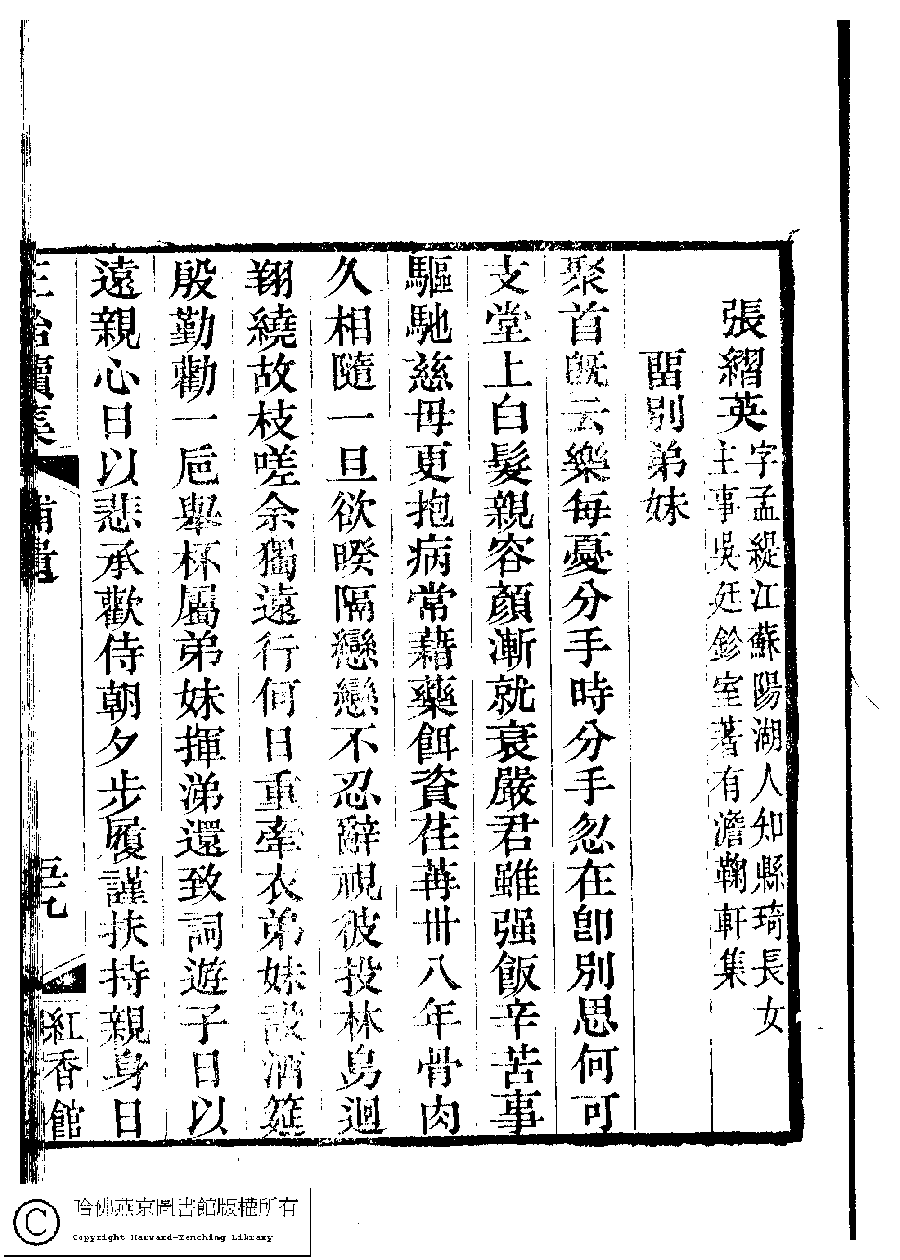 張䌌英字孟緹江蘇陽湖人知縣琦長女
主事吳廷鉁室著有澹鞠軒集
畱别弟妹
聚首旣云樂每憂分手時分手忽在卽別思何可
支堂上白髮親容顏漸就衰嚴君雖强飯辛苦事
驅馳慈母更抱病常藉藥餌資荏苒卅八年骨肉
久相隨一旦欲暌隔戀戀不忍辭視彼投林鳥迴
翔繞故枝嗟余獨遠行何日重牽衣弟妹設酒筵
殷勤勸一巵舉杯屬弟妹揮涕還致詞遊子日以
遠親心日以悲承歡侍朝夕步履謹扶持親身日
正始續集
補遺
五九
紅香館
哈佛燕京圖書館版權所有
Copyright Harvard-Yenching Library